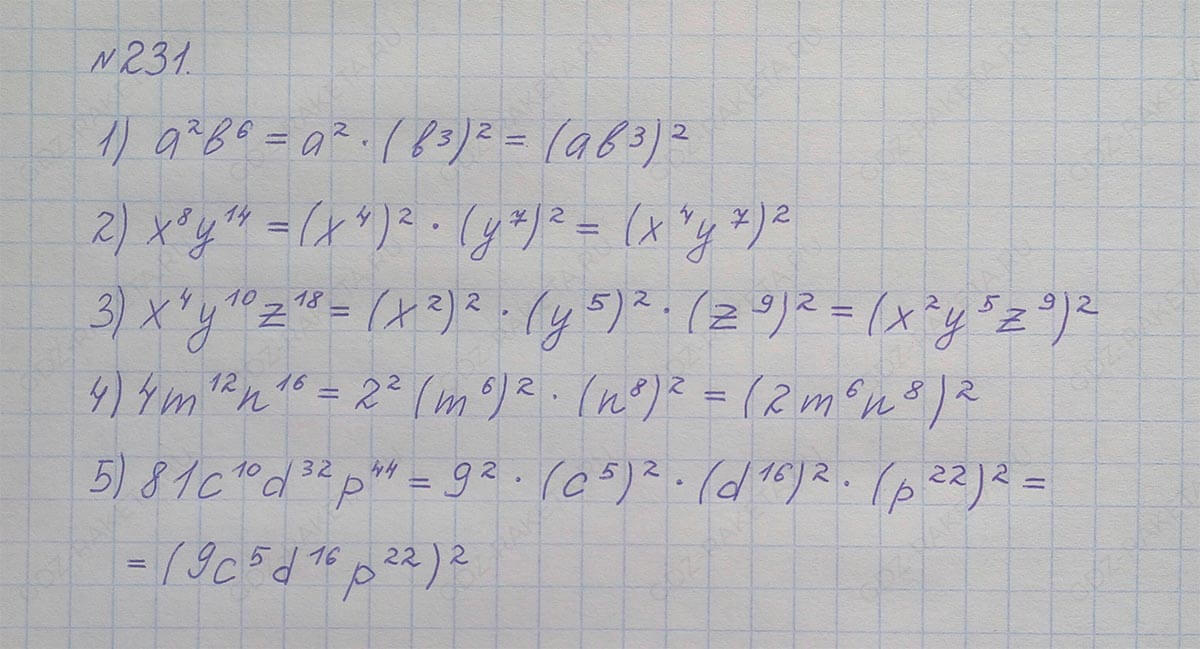 №231.
1) a²b⁶ = a² · (b³)² = (ab³)²
2) x⁸y¹⁴ = (x⁴)² · (y⁷)² = (x⁴y⁷)²
3) x⁴y¹⁰z¹⁸ = (x²)² · (y⁵)² · (z⁹)² = (x²y⁵z⁹)²
4) 4m¹²n¹⁶ = 2² (m⁶)² · (n⁸)² = (2m⁶n⁸)²
5) 81c¹⁰d³²p⁴⁴ = 9² · (c⁵)² · (d¹⁶)² · (p²²)² =
= (9c⁵d¹⁶p²²)²